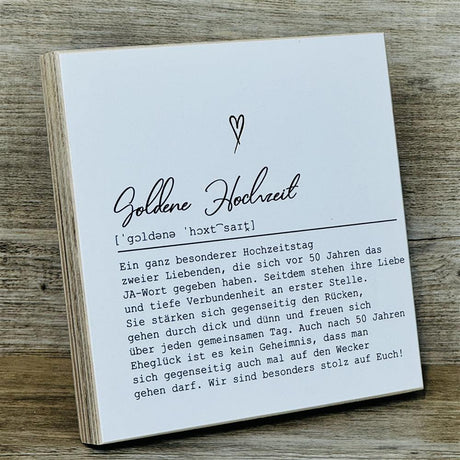 Goldene Hochzeit
[ˈɡɔldənə ˈhɔxt͡saɪ̯t]
Ein ganz besonderer Hochzeitstag
zweier Liebenden, die sich vor 50 Jahren das
JA-Wort gegeben haben. Seitdem stehen ihre Liebe
und tiefe Verbundenheit an erster Stelle.
Sie stärken sich gegenseitig den Rücken,
gehen durch dick und dünn und freuen sich
über jeden gemeinsamen Tag. Auch nach 50 Jahren
Eheglück ist es kein Geheimnis, dass man
sich gegenseitig auch mal auf den Wecker
gehen darf. Wir sind besonders stolz auf Euch!